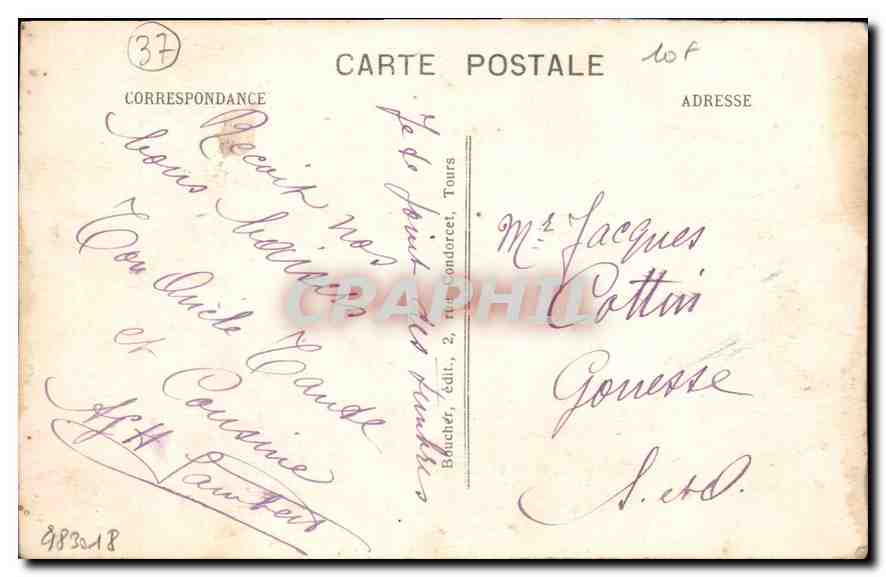 37
CARTE POSTALE
10F
CORRESPONDANCE
ADRESSE
Reçoit nos
bons baisers
Ton Oncle Tante
et Cousine
Lambert
Je te joint des timbres
Boucher, édit., 2, rue Condorcet, Tours
Mr Jacques
Cottin
Gonesse
S. et O.
CPARPHIL
983018